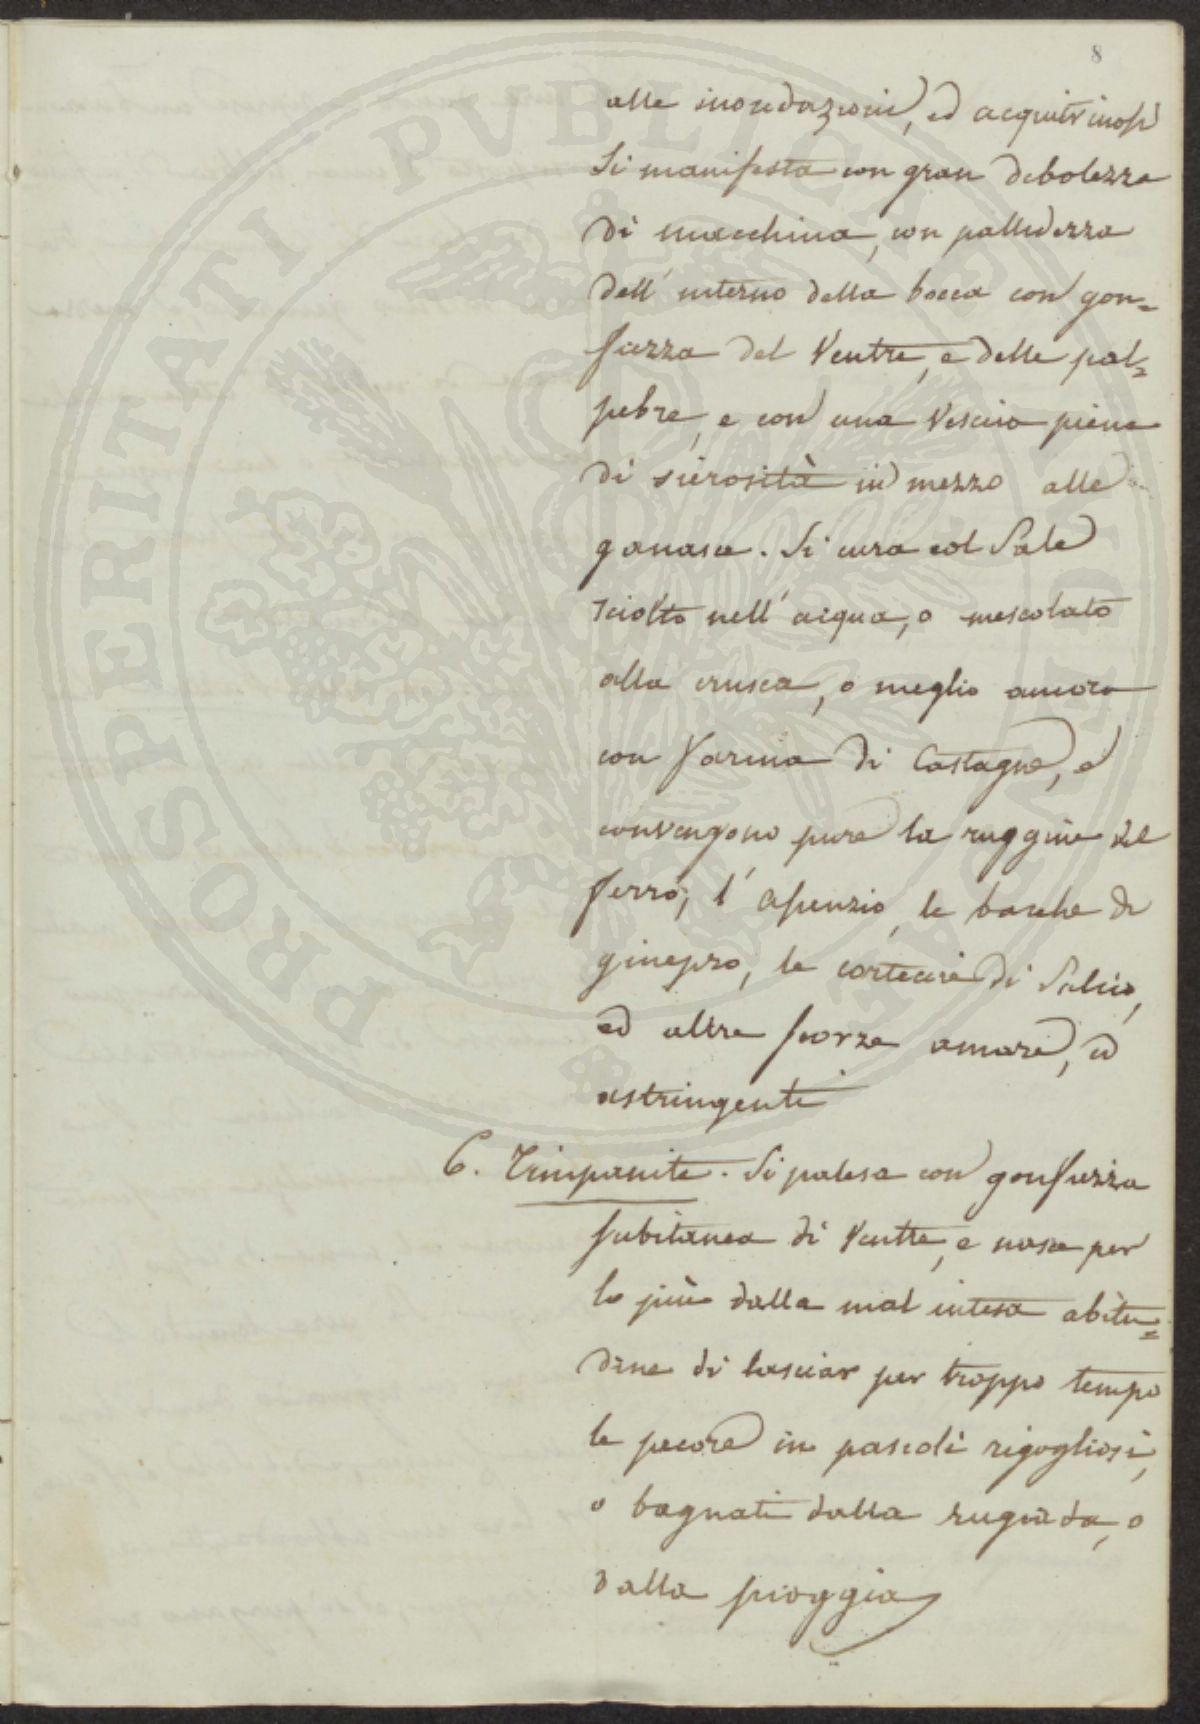 8
alle inondazioni, ed acquitrinosi
Si manifesta con gran debolezza
di macchina, con pallidezza
dell' interno della bocca con gon=
fiezza del Ventre, e delle pal=
pebre, e con una Vescica piena
di sierosità in mezzo alle
ganasce. Si cura col Sale
sciolto nell' acqua, o mescolato
alla crusca, o meglio ancora
con farina di Castagne, e
convengono pure la ruggine del
ferro, l' Assenzio, le bacche di
ginepro, le cortecce di Salcio,
ed altre scorze amare, ed
astringenti
6. Timpanite. Si palesa con gonfiezza
subitanea di Ventre, e nasce per
lo più dalla mal intesa abitu=
dine di lasciar per troppo tempo
le pecore in pascoli rigogliosi,
o bagnati dalla rugiada, o
dalla pioggia
PROSPERITATI PVBLICAE